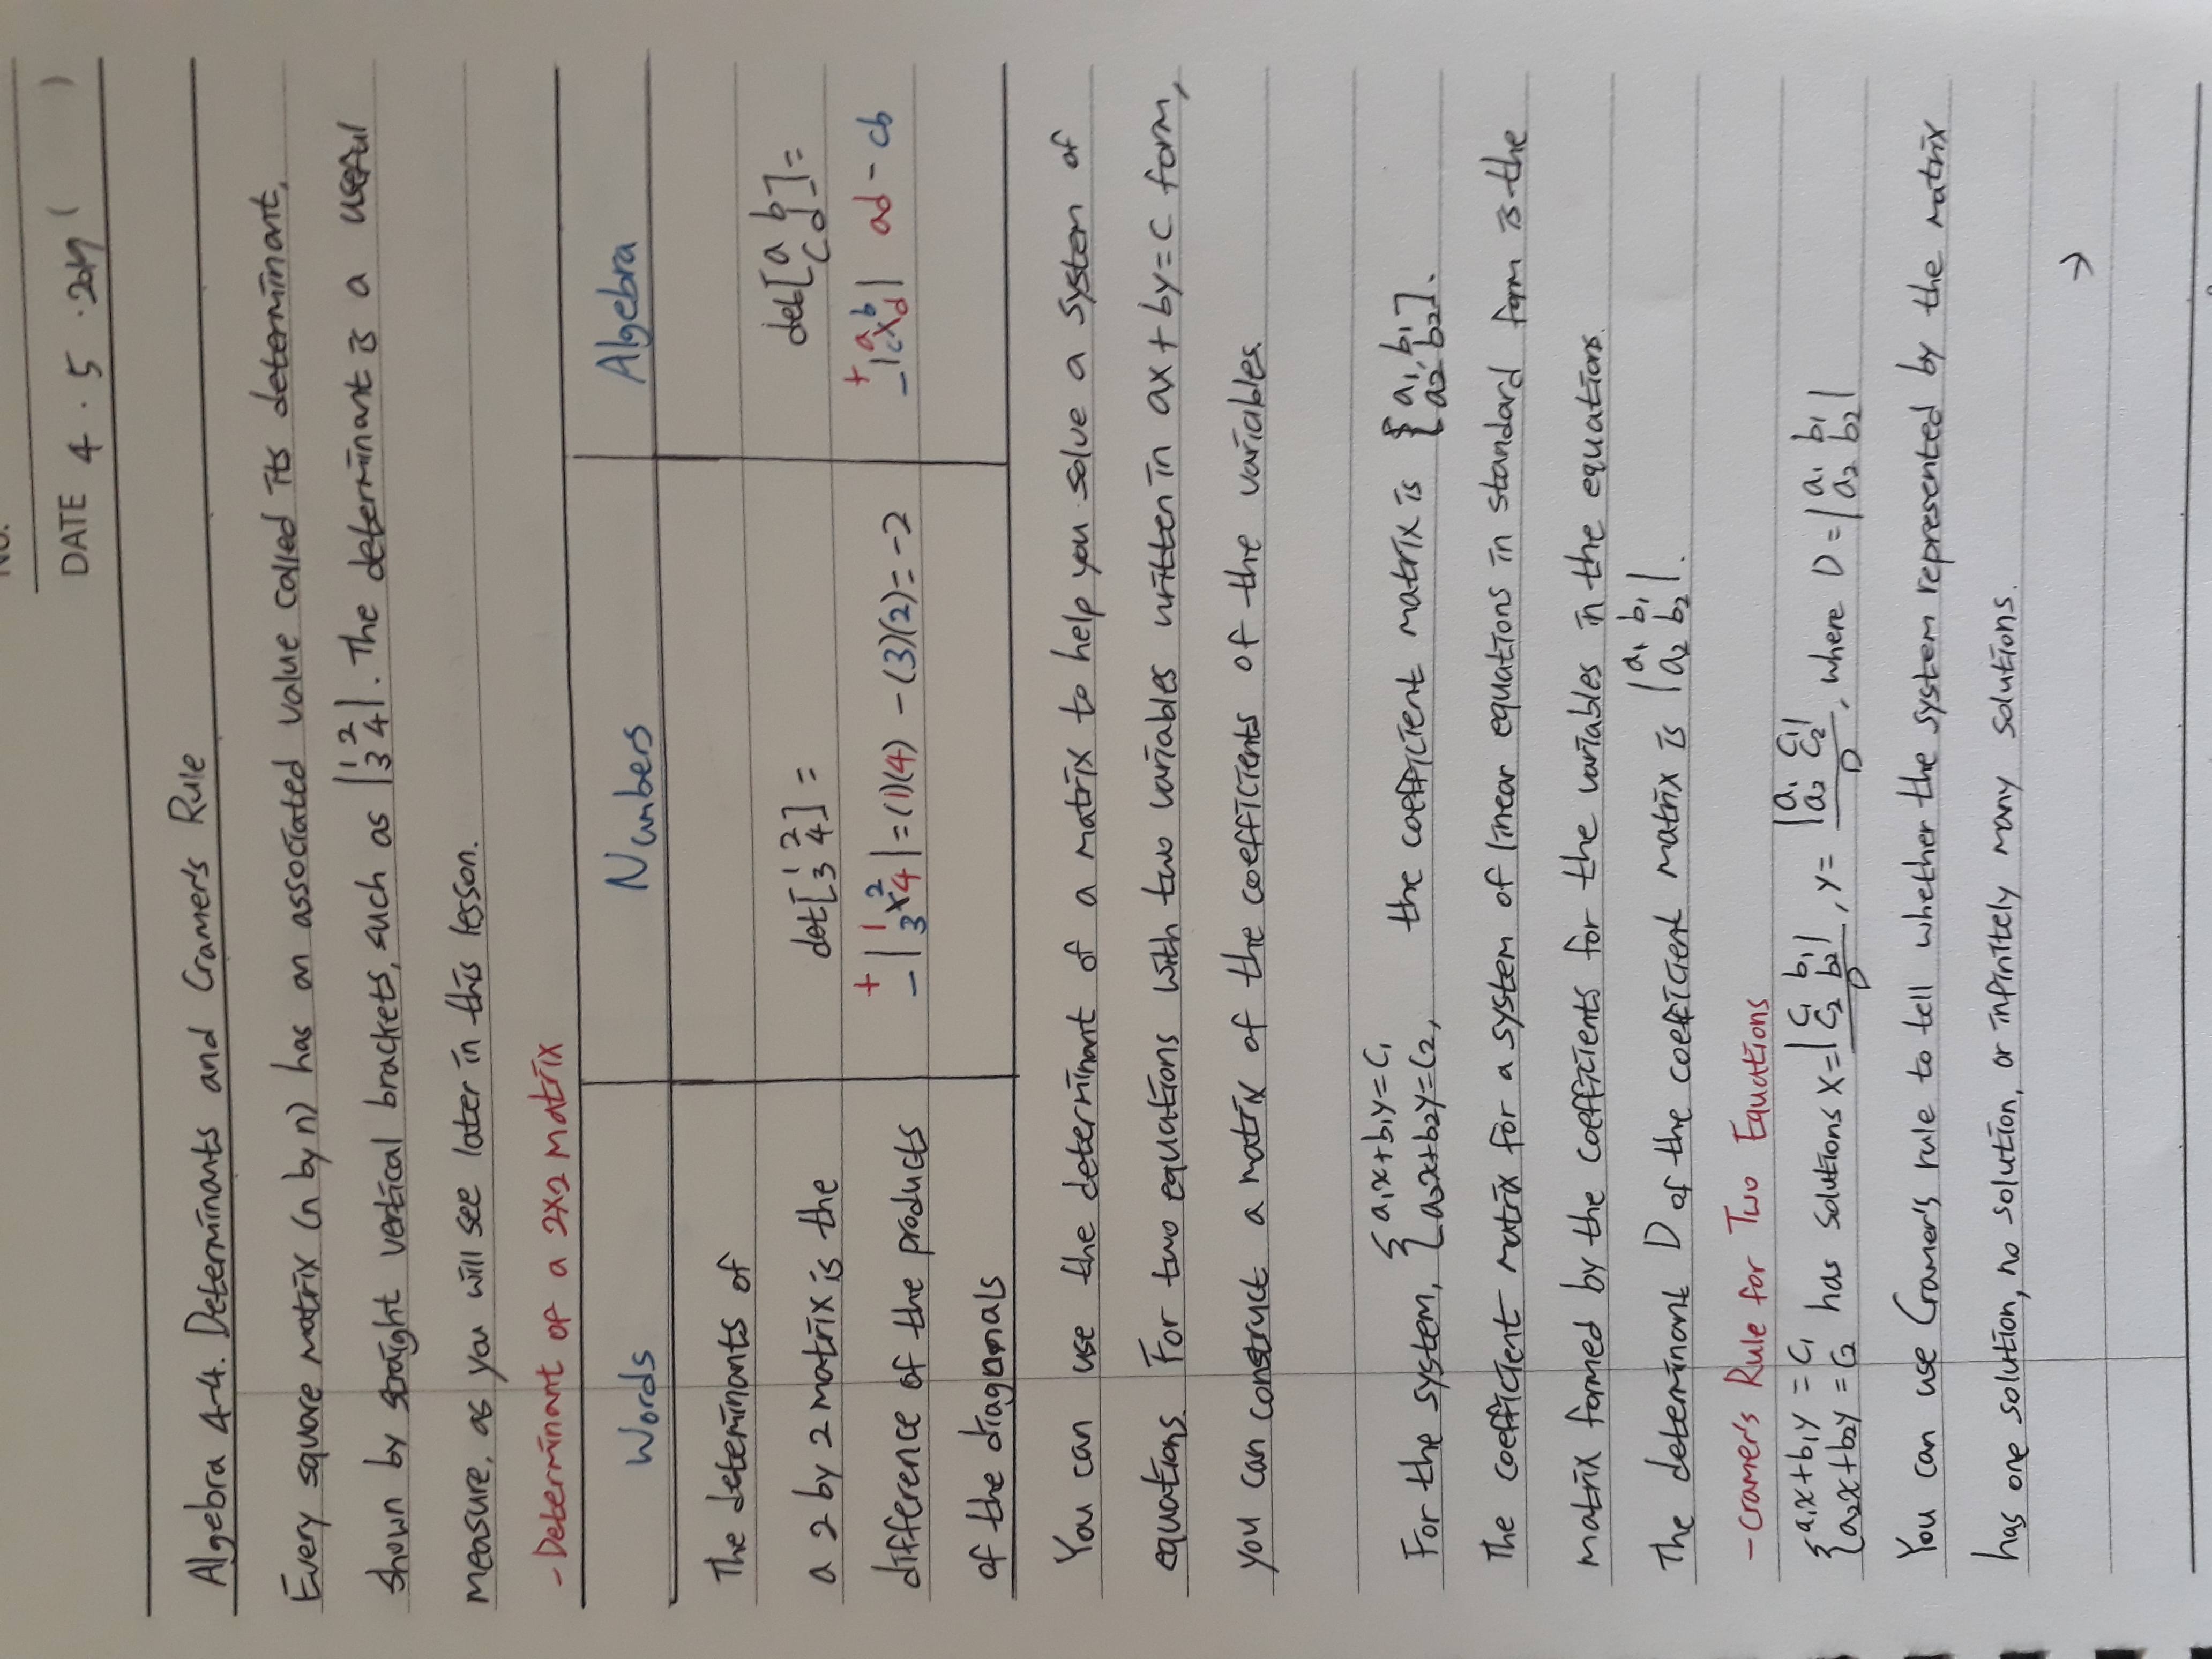 No.
DATE 4 . 5 . 2019 ( )
Algebra 4-4. Determinants and Cramer's Rule
Every square matrix (n by n) has an associated value called its determinant,
shown by straight vertical brackets, such as |1 2; 3 4|. The determinant is a useful
measure, as you will see later in this lesson.
- Determinant of a 2x2 matrix
Words Numbers Algebra
The determinants of
a 2 by 2 matrix is the det[1 2; 3 4] = det[a b; c d] =
difference of the products + - |1 2; 3 4| = (1)(4) - (3)(2) = -2 + - |a b; c d| ad - cb
of the diagonals
You can use the determinant of a matrix to help you solve a system of
equations. For two equations with two variables written in ax + by = c form,
you can construct a matrix of the coefficients of the variables.
For the system, { a₁x+b₁y=c₁; a₂x+b₂y=c₂, the coefficient matrix is [a₁, b₁; a₂ b₂].
The coefficient matrix for a system of linear equations in standard form is the
matrix formed by the coefficients for the variables in the equations.
The determinant D of the coefficient matrix is |a₁ b₁; a₂ b₂|.
- Cramer's Rule for Two Equations
{ a₁x+b₁y = c₁; a₂x+b₂y = c₂ has solutions x = |c₁ b₁; c₂ b₂| / D, y = |a₁ c₁; a₂ c₂| / D, where D = |a₁ b₁; a₂ b₂|
You can use Cramer's rule to tell whether the system represented by the matrix
has one solution, no solution, or infinitely many solutions.
→